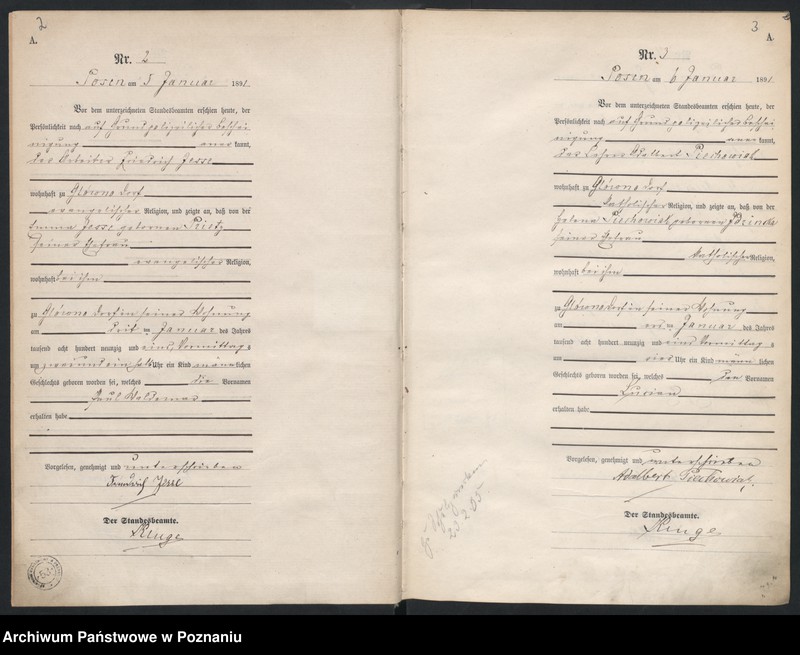 2
A.
Nr. 2
Posen am 5 Januar 1891
Vor dem unterzeichneten Standesbeamten erschien heute, der
Persönlichkeit nach auf Grund polizeilicher Beschei
nigung anerkannt,
der Arbeiter Friedrich Jesse
wohnhaft zu Glówno Dorf
evangelischer Religion, und zeigte an, daß von der
Jesse geborenen
seiner Ehefrau
evangelischer Religion,
wohnhaft bei ihm
zu Glówno Dorf in seiner Wohnung
am Januar des Jahres
tausend acht hundert neunzig und eins, Vormittags
um Uhr ein Kind männlichen
Geschlechts geboren worden sei, welches die Vornamen
Paul Waldemar
erhalten habe
Vorgelesen, genehmigt und unterschrieben
Friedrich Jesse
Der Standesbeamte.
Kluge
3
A.
Nr. 3
Posen am 6 Januar 1891
Vor dem unterzeichneten Standesbeamten erschien heute, der
Persönlichkeit nach auf Grund polizeilicher Beschei
nigung anerkannt,
der Adalbert
wohnhaft zu Glówno Dorf
katholischer Religion, und zeigte an, daß von der
Helena geborenen
seiner Ehefrau
katholischer Religion,
wohnhaft bei ihm
zu Glówno Dorf in seiner Wohnung
am Januar des Jahres
tausend acht hundert neunzig und eins Vormittags
um Uhr ein Kind männlichen
Geschlechts geboren worden sei, welches den Vornamen
Lucian
erhalten habe
Vorgelesen, genehmigt und unterschrieben
Adalbert
Der Standesbeamte.
Kluge
Archiwum Państwowe w Poznaniu